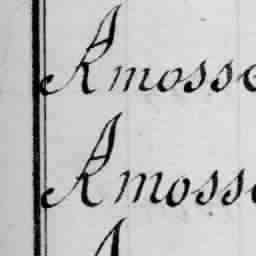 Amosse
Amosse